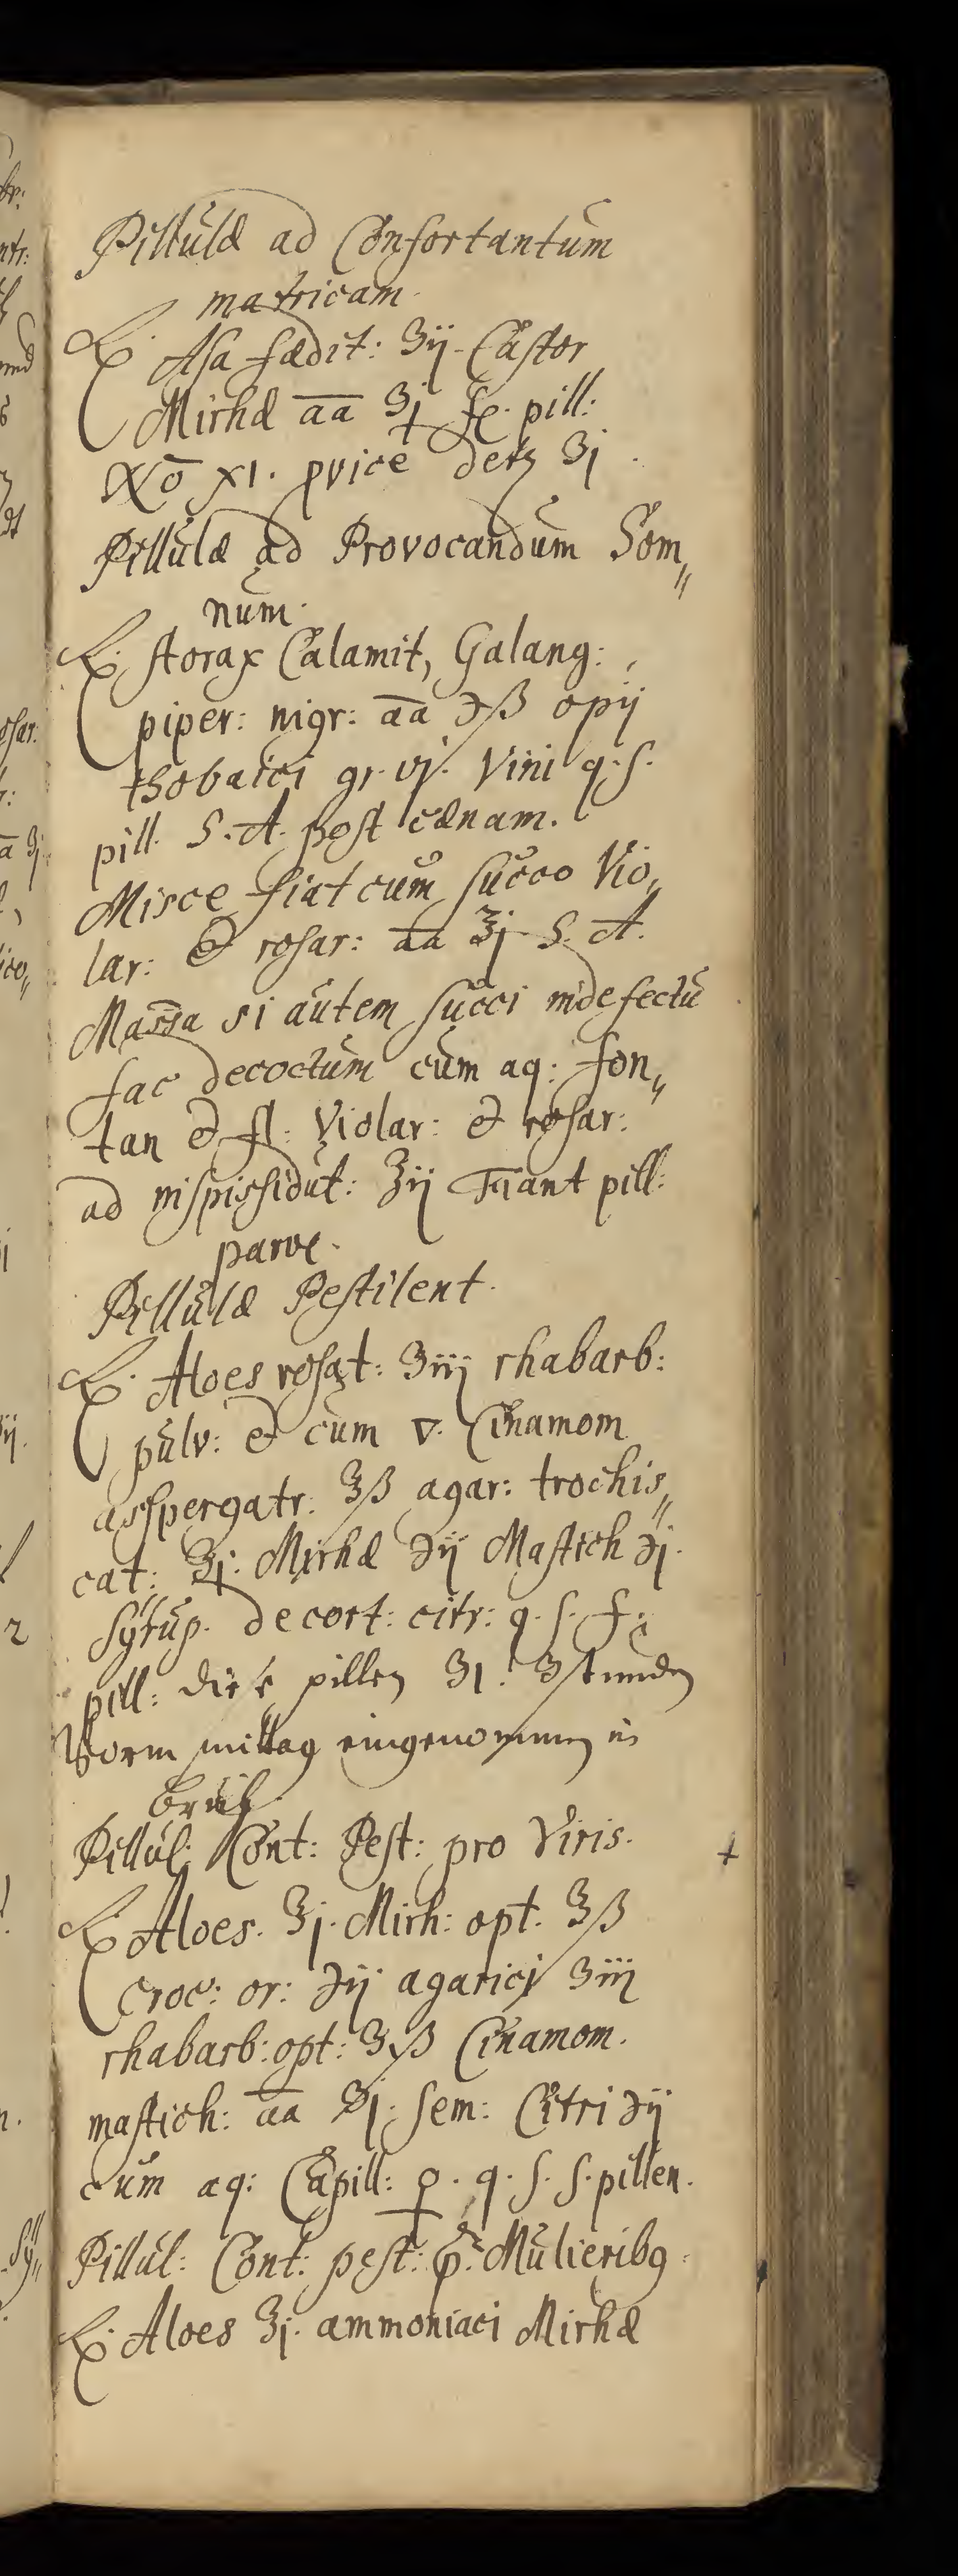 Pillulæ ad Confortantum
matricam.
℞. Asa fædit: ʒij. Castor
Mirhæ aa ʒj fe. pill:
No XI. price derz ʒj.
Pillulæ ad Provocandum Som„
num.
℞. storax Calamit, Galang:
piper: nigr: aa ℈ß opij
thobaici gr. vj. Vini q. s.
pill. S. A. post cænam.
Misce fiat cum succo Vio„
lar: & rosar: aa ℥j S. A.
Massa si autem succi indefectu
fac decoctum cum aq: fon„
tan & fl: Violar: & rosar:
ad inspissidut: ℥ij Fiant pill:
parve.
Pillulæ Pestilent.
℞. Aloes rosat: ʒiij rhabarb:
pulv: & cum ▽. Cinamom
asspergatr: ℥ß agar: trochis„
cat: ℥j: Mirhæ ℈ij Mastich ℈j.
Syrup. de cort: citr: q. s. f:
pill: diese pillen ʒ1. 3 stunden
Vorm mittag eingenommen in
brüh
Pillul: Cont: Pest: pro Viris.
℞ Aloes. ℥j. Mirh: opt. ℥ß
Croc: or: ℈ij agarici ʒiij
rhabarb: opt: ʒvß Cinamom.
mastich: aa ʒj. sem: Citri ℈ij
cum aq: Capill: ♀. q. s. s. pillen.
Pillul: Cont: pest: p: Mulieribq.
℞. Aloes ℥j. ammoniaci Mirhæ